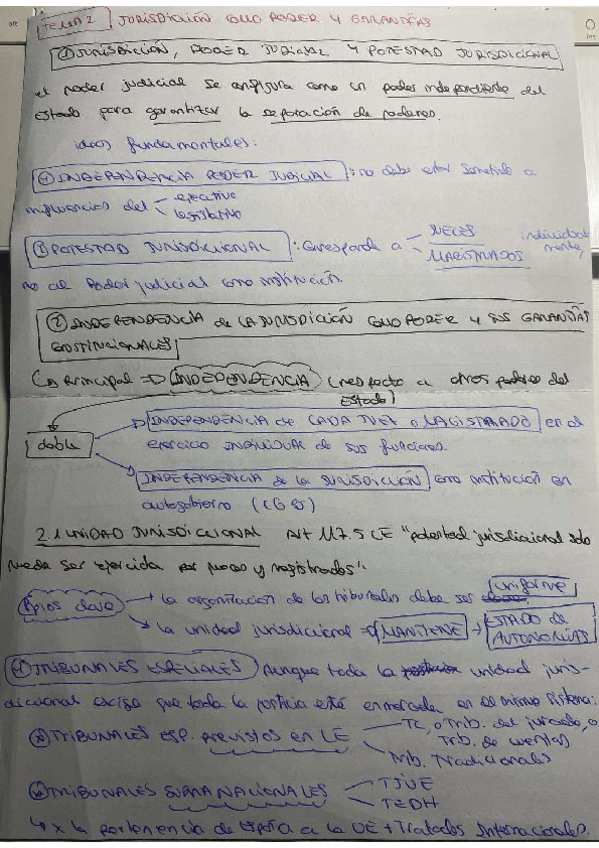 TEMA 2 JURISDICCIÓN COMO PODER Y GARANTÍAS
① JURISDICCIÓN, PODER JUDICIAL Y POTESTAD JURISDICCIONAL
el poder judicial se configura como un poder independiente del
Estado para garantizar la separación de poderes.
ideas fundamentales:
INDEPENDENCIA PODER JUDICIAL: no debe estar sometido a
influencias del ejecutivo
legislativo
POTESTAD JURISDICCIONAL: Corresponde a JUECES individual
MAGISTRADOS mente,
no al Poder judicial como institución.
② INDEPENDENCIA de LA JURISDICCIÓN COMO PODER Y SUS GARANTÍAS
CONSTITUCIONALES
Principal => INDEPENDENCIA (respecto a otros poderes del
Estado)
doble
INDEPENDENCIA de CADA JUEZ o MAGISTRADO en el
ejercicio INDIVIDUAL de sus funciones.
INDEPENDENCIA de la JURISDICCIÓN como institución en
autogobierno
2.1 UNIDAD JURISDICCIONAL Art 117.5 CE "potestad jurisdiccional solo
puede ser ejercida por jueces y magistrados".
Ppios clave → la organización de los tribunales debe ser uniforme
la unidad jurisdiccional => MANTIENE → ESTADO de
AUTONOMÍAS
TRIBUNALES ESPECIALES Aunque toda la unidad juris-
diccional exige que toda la justicia esté enmarcada en el mismo sistema:
TRIBUNALES ESP. previstos en CE TC, o Trib. del jurado, o
Trib. de cuentas
Trib. Tradicionales
TRIBUNALES SUPRANACIONALES TJUE
TEDH
↳ x la pertenencia de España a la UE + Tratados Internacionales.